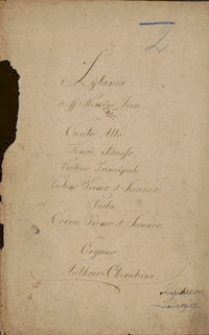 2
Lytania
in
Canto Alto
Tenore Basso
Violino Principale
Violino Primo et Secundo
Viola
Corno Primo et Secundo
Organo
Authore Cherubini